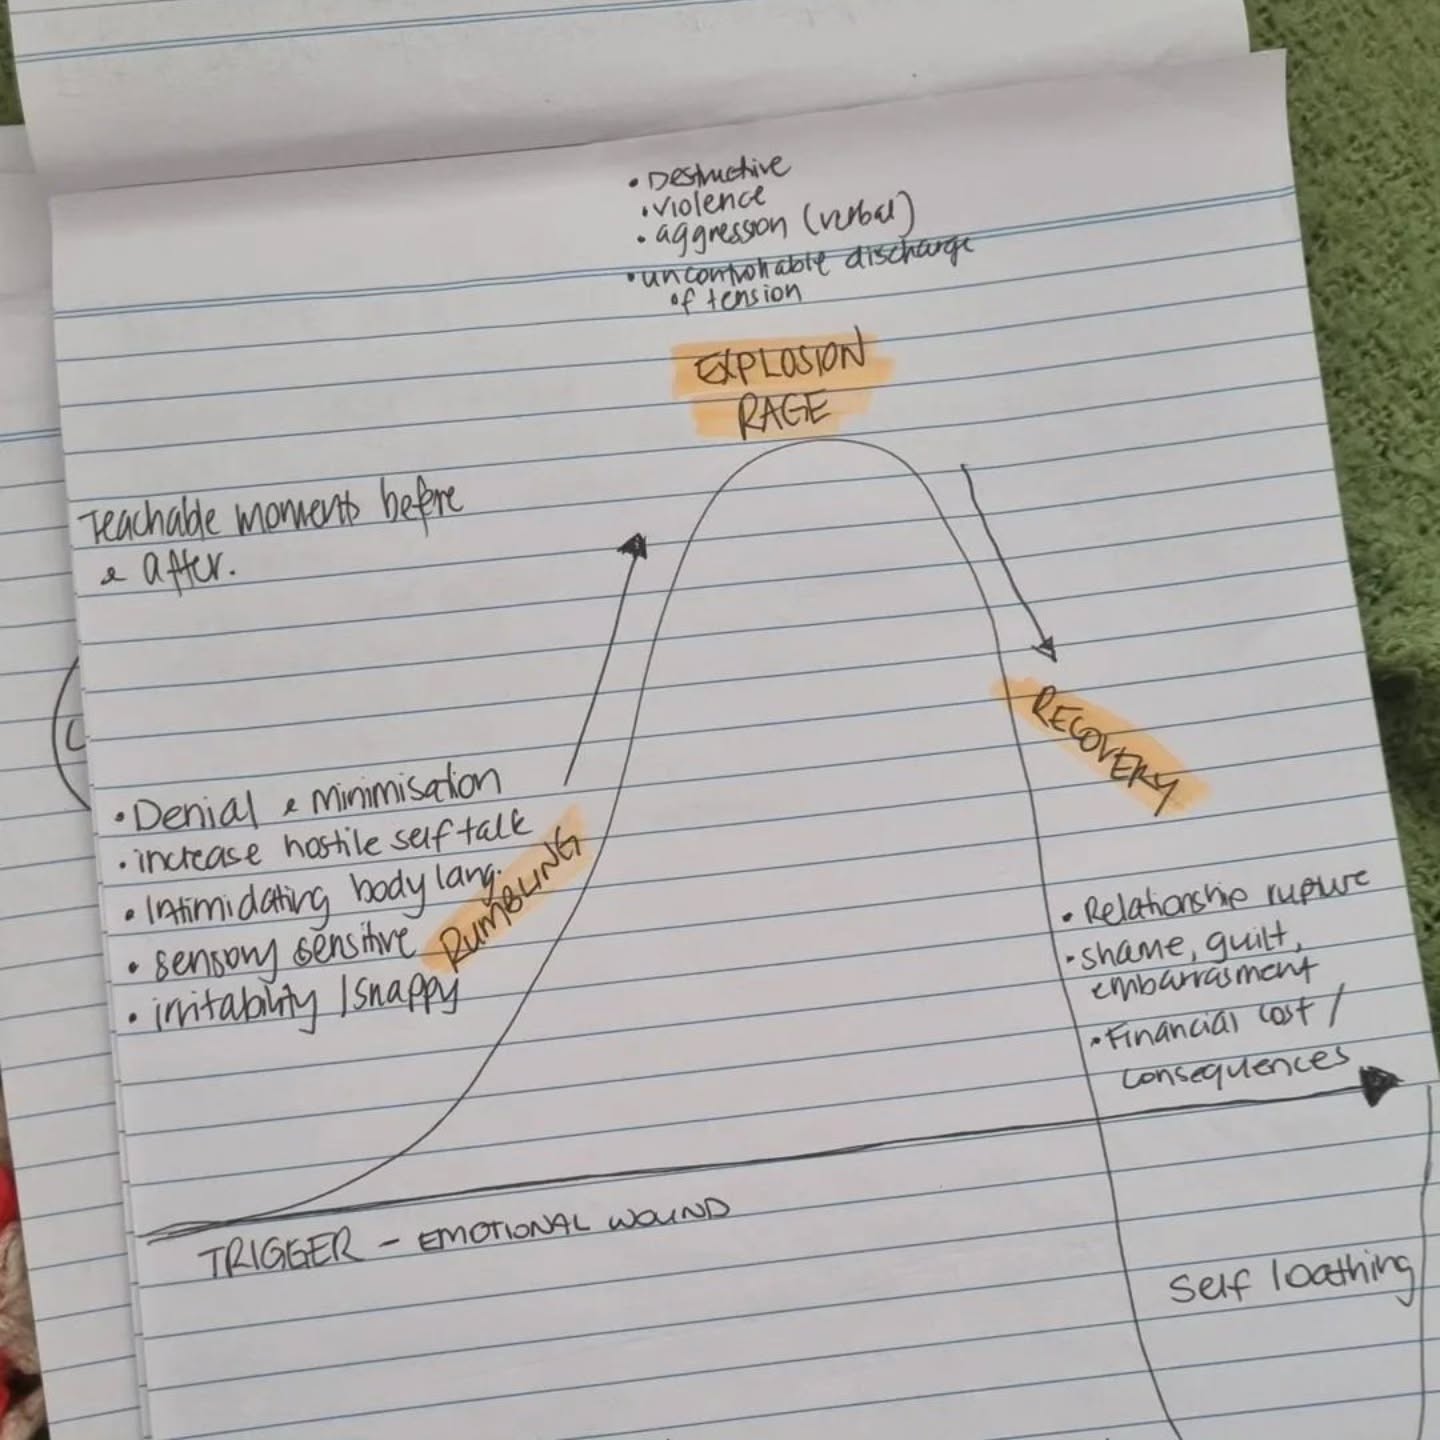 • Destructive
• violence
• aggression (verbal)
• uncontrollable discharge
of tension
EXPLOSION
RAGE
Teachable moments before
& after.
RECOVERY
• Denial & minimisation
• increase hostile self talk
• Intimidating body lang.
• sensory sensitive
• irritability / snappy
RUMBLING
• Relationship rupture
• shame, guilt,
embarrasment
• Financial cost /
consequences
TRIGGER - EMOTIONAL WOUND
Self loathing